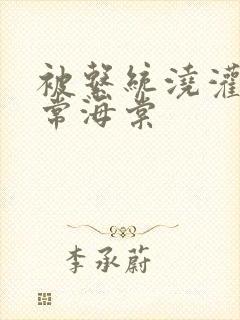 被系統澆灌
常海棠
李承蔚